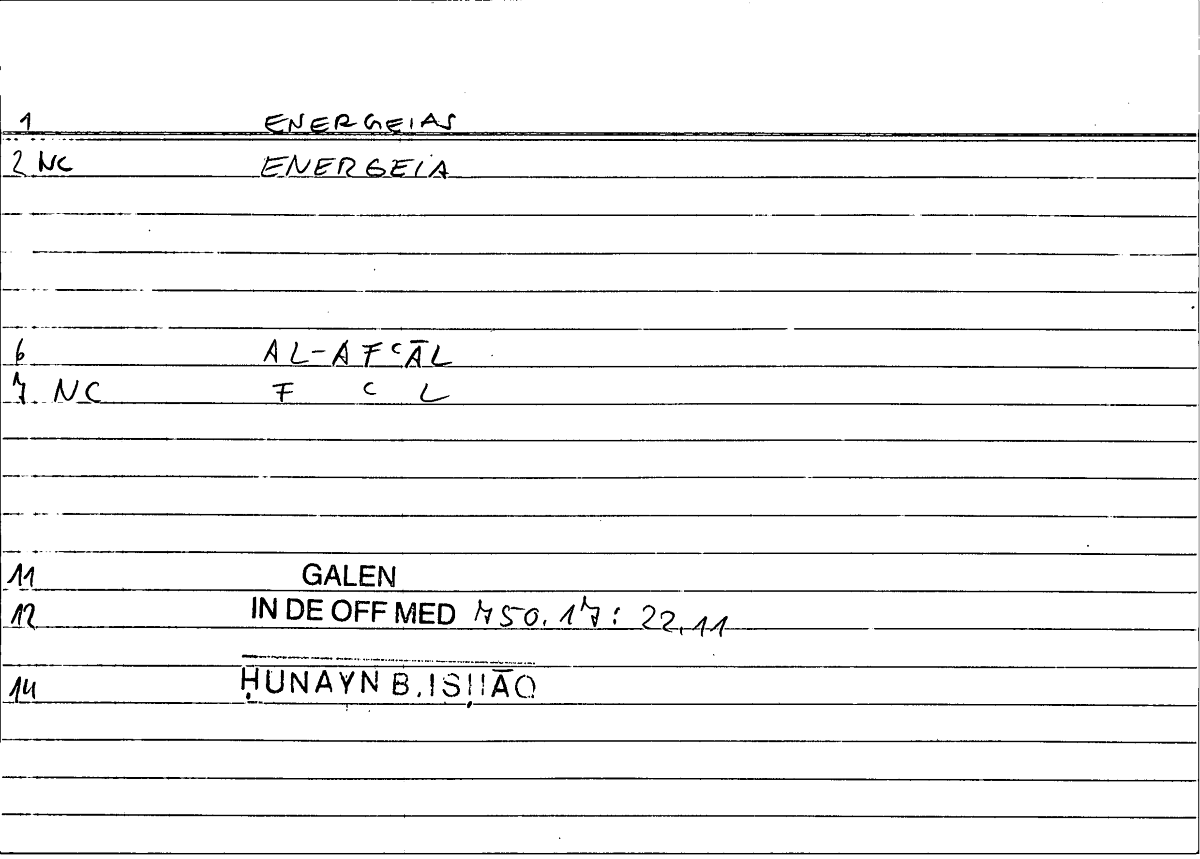 1 ENERGEIAS
2 NC ENERGEIA
6 AL-AFʿĀL
7 NC F ʿ L
11 GALEN
12 IN DE OFF MED 750.17: 22,11
14 ḤUNAYN B.ISḤĀQ